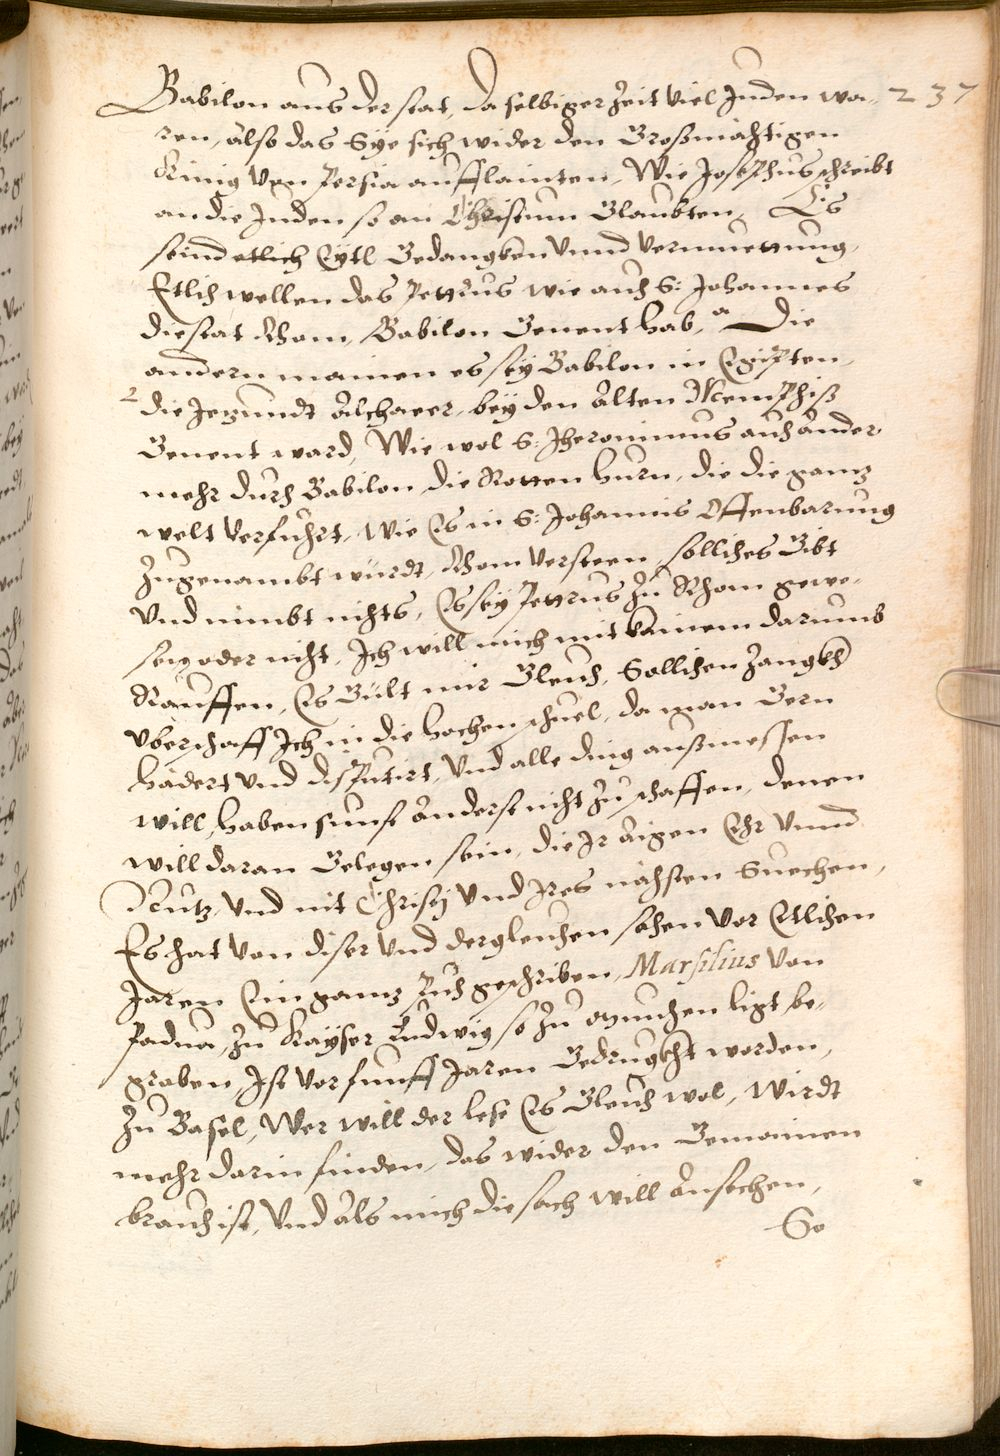 Babilon aus der stat, da selbiger Zeit viel Juden wa- 237
ren, also das Sye sich wider den Großmächtigen
Künig von Persia aufflainten, Wie Josephus schreibt
an die Juden so an Christum Glaubten, Es
seind etlich Eytl Gedangken vnnd vermuettung,
Etlich wellen das Pettrus wie auch S: Johannes
die stat Rhom, Babilon Genent hab, a Die
andern mainen es sey Babilon in Egipten,
2 die Jezundt Alchaeer, bey den Alten Memphiß
Genent ward, Wie wol S: Jheronimus auch ander
mehr durch Babilon die Rotten hurn, die die ganz
welt verfuhrt, Wie Es in S: Johannis Offenbarung
Zugenambt würdt, Rhom versteen, solliches Gibt
Vnd nimbt nichts, Es sey Pettrus Zu Rhom gewe-
sen oder nicht, Ich will mich mit kainem darumb
Rauffen, Es Gült mir Gleich, Sollichen Zangkh
vberschaff Ich in die hochen schuel, da man Gern
hadert vnd disputirt, Vnd alle ding außmessen
will, haben sunst anderst nicht Zu schaffen, denen
will daran Gelegen sein, die Ir aigen Ehr vnnd
Nutz, vnd nit Christj vnd Ires nächsten Suechen,
Es hat von diser vnd dergleichen sachen vor Etlichen
Jaren Ein ganz Puch geschriben, Marsilius von
Padua, Zu Kayser Ludwig so Zu München ligt be-
graben, Ist vor funff Jaren Gedrugkht worden,
Zu Basel, Wer will der lese Es Gleich wol, Wirdt
mehr darin finden, das wider den Gemainen
brauch ist, Vnd als mich die sach will ansechen,
So